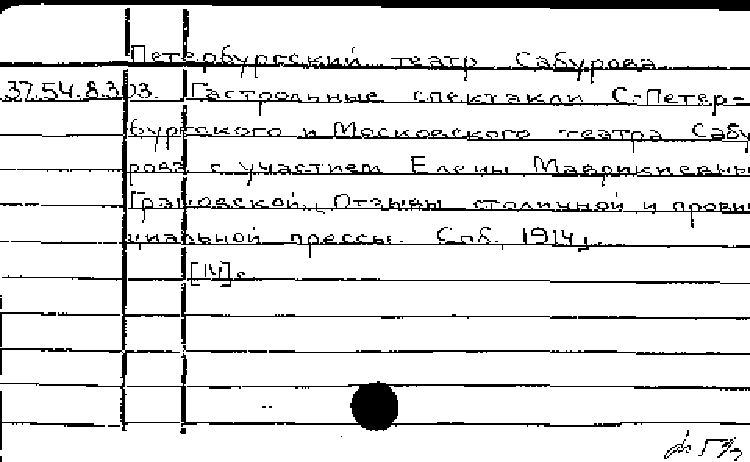 Петербургский театр Сабурова
37.54.8.303. Гастрольные спектакли С.-Петер-
бургского и Московского театра Сабу
рова с участием Елены Маврикиевны
Грановской. Отзывы столичной и провин
циальной прессы. Спб., 1914,
[IV]с